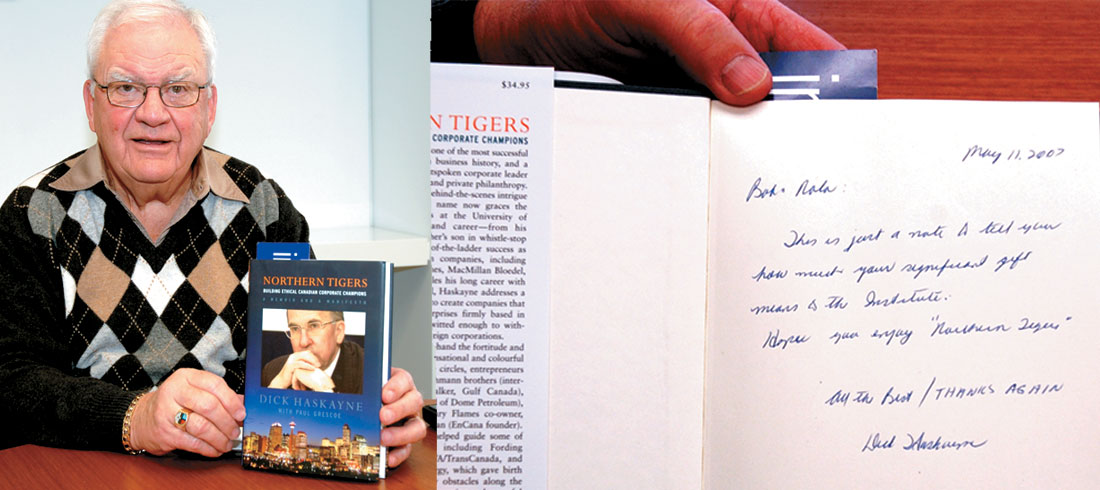 NORTHERN TIGERS
BUILDING ETHICAL CANADIAN CORPORATE CHAMPIONS
A MEMOIR AND A MANIFESTO
DICK HASKAYNE
WITH PAUL GRESCOE
$34.95
N TIGERS
CORPORATE CHAMPIONS
one of the most successful
business history, and a
tspoken corporate leader
and private philanthropy.
ehind-the-scenes intrigue
name now graces the
s at the University of
and career—from his
her's son in whistle-stop
of-the-ladder success as
a companies, including
nes, MacMillan Bloedel,
les his long career with
l, Haskayne addresses a
to create companies that
rprises firmly based in
witted enough to with-
eign corporations.
-hand the fortitude and
nsational and colourful
circles, entrepreneurs
hmann brothers (inter-
alker, Gulf Canada),
of Dome Petroleum),
ary Flames co-owner,
an (EnCana founder).
helped guide some of
including Fording
A/TransCanada, and
gy, which gave birth
obstacles along the
in
May 11, 2007
Bob & Nola:
This is just a note to tell you
how much your significant gift
means to the Institute.
Hope you enjoy "Northern Tigers"
All the Best / THANKS AGAIN
Dick Haskayne